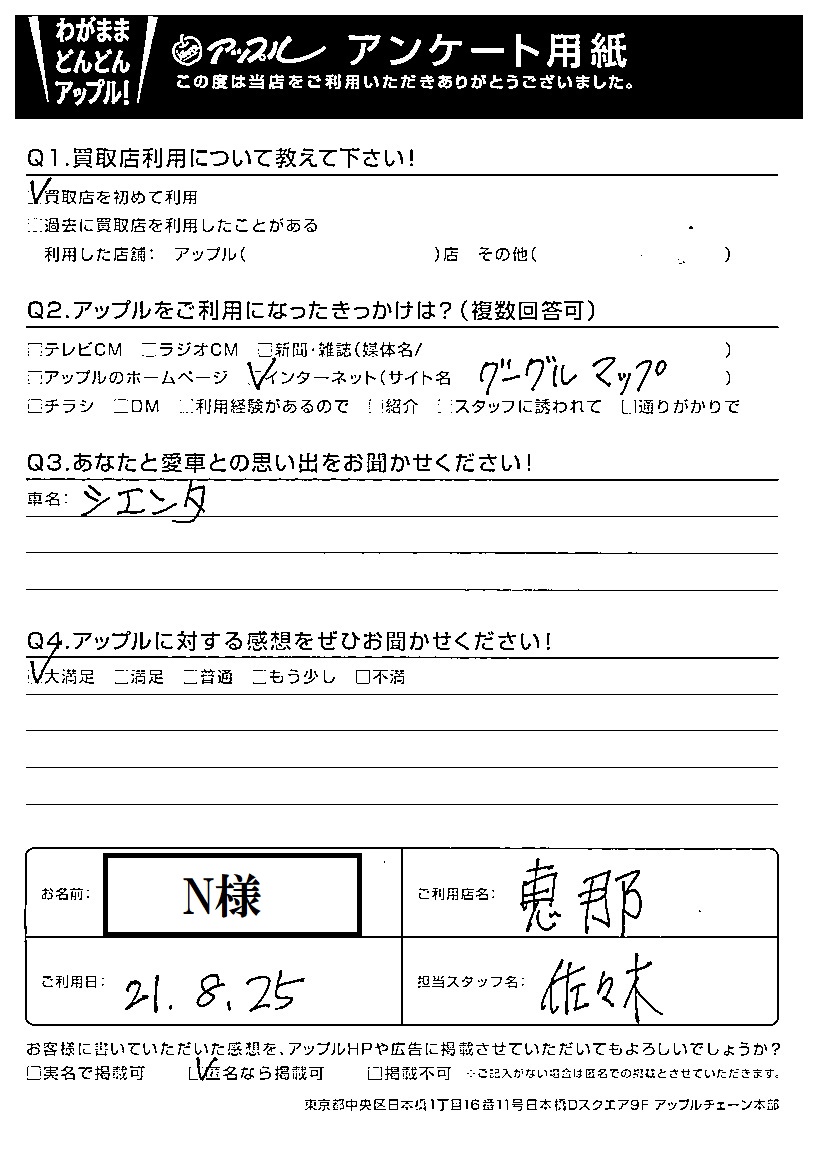 わがまま
どんどん
アップル!
アップル アンケート用紙
この度は当店をご利用いただきありがとうございました。
Q1.買取店利用について教えて下さい!
☑買取店を初めて利用
□過去に買取店を利用したことがある
利用した店舗: アップル( )店 その他( )
Q2.アップルをご利用になったきっかけは?(複数回答可)
□テレビCM □ラジオCM □新聞・雑誌(媒体名/ )
□アップルのホームページ ☑インターネット(サイト名 グーグル マップ )
□チラシ □DM □利用経験があるので □紹介 □スタッフに誘われて □通りがかりで
Q3.あなたと愛車との思い出をお聞かせください!
車名: シエンタ
Q4.アップルに対する感想をぜひお聞かせください!
☑大満足 □満足 □普通 □もう少し □不満
お名前: N様
ご利用店名: 恵那
ご利用日: 21.8.25
担当スタッフ名: 佐々木
お客様に書いていただいた感想を、アップルHPや広告に掲載させていただいてもよろしいでしょうか?
□実名で掲載可 ☑匿名なら掲載可 □掲載不可 ※ご記入がない場合は匿名での掲載とさせていただきます。
東京都中央区日本橋1丁目16番11号日本橋Dスクエア9F アップルチェーン本部